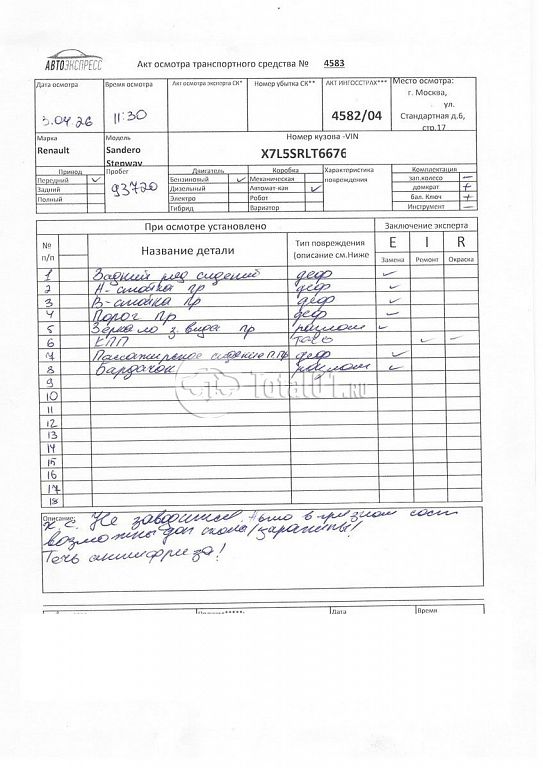 АВТОЭКСПРЕСС
Акт осмотра транспортного средства № 4583
Дата осмотра
Время осмотра
Акт осмотра эксперта СК*
Номер убытка СК**
АКТ ИНГОССТРАХ***
Место осмотра:
г. Москва,
ул.
Стандартная д.6,
стр.17
.04.26
11:30
4582/04
Марка
Модель
Номер кузова -VIN
Renault
Sandero
Stepway
X7L5SRLT6676
Привод
Пробег
Двигатель
Коробка
Характеристика
повреждения
Комплектация
Передний ✓
93720
Бензиновый ✓
Механическая
зап.колесо −
Задний
Дизельный
Автомат-кая ✓
домкрат +
Полный
Электро
Робот
бал. Ключ +
Гибрид
Вариатор
Инструмент −
При осмотре установлено
Заключение эксперта
№
п/п
Название детали
Тип повреждения
(описание см.Ниже
E I R
Замена Ремонт Окраска
1 Задний ряд сидений деф ✓
2 А-стойка пр деф ✓
3 В-стойка пр деф ✓
4 Порог пр деф ✓
5 Зеркало з. вида пр разлом ✓
6 КПП течь ✓ −
7 Пассажирское сидение П.Пр деф ✓
8 Бардачок разлом ✓
9
10
11
12
13
14
15
16
17
18
TOTAL01.RU
Описание:
Не заводится. А/м в грязном сост
возможны доп сколы/царапины!
Течь антифриза!
Дата
Время